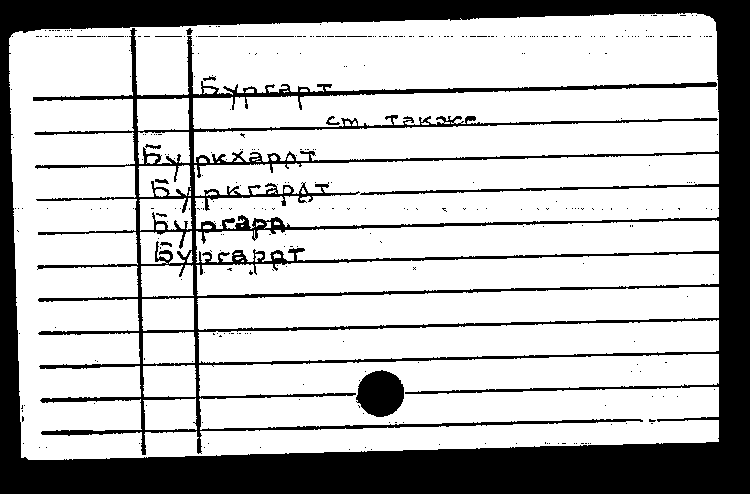 Бургарт
см. также
Буркхардт
Буркгардт
Бургард
Бургардт